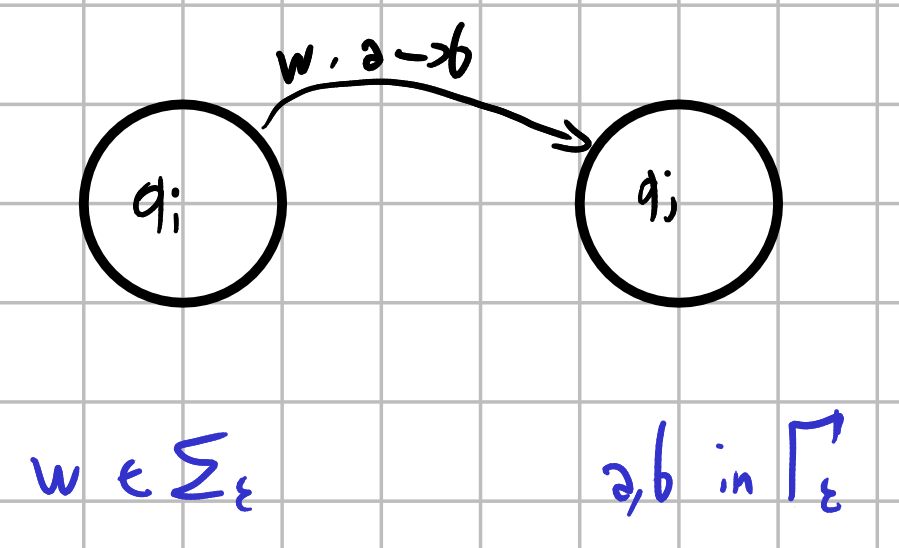 w, a → b
qᵢ
qⱼ
w ϵ Σ_ε
a,b in Γ_ε